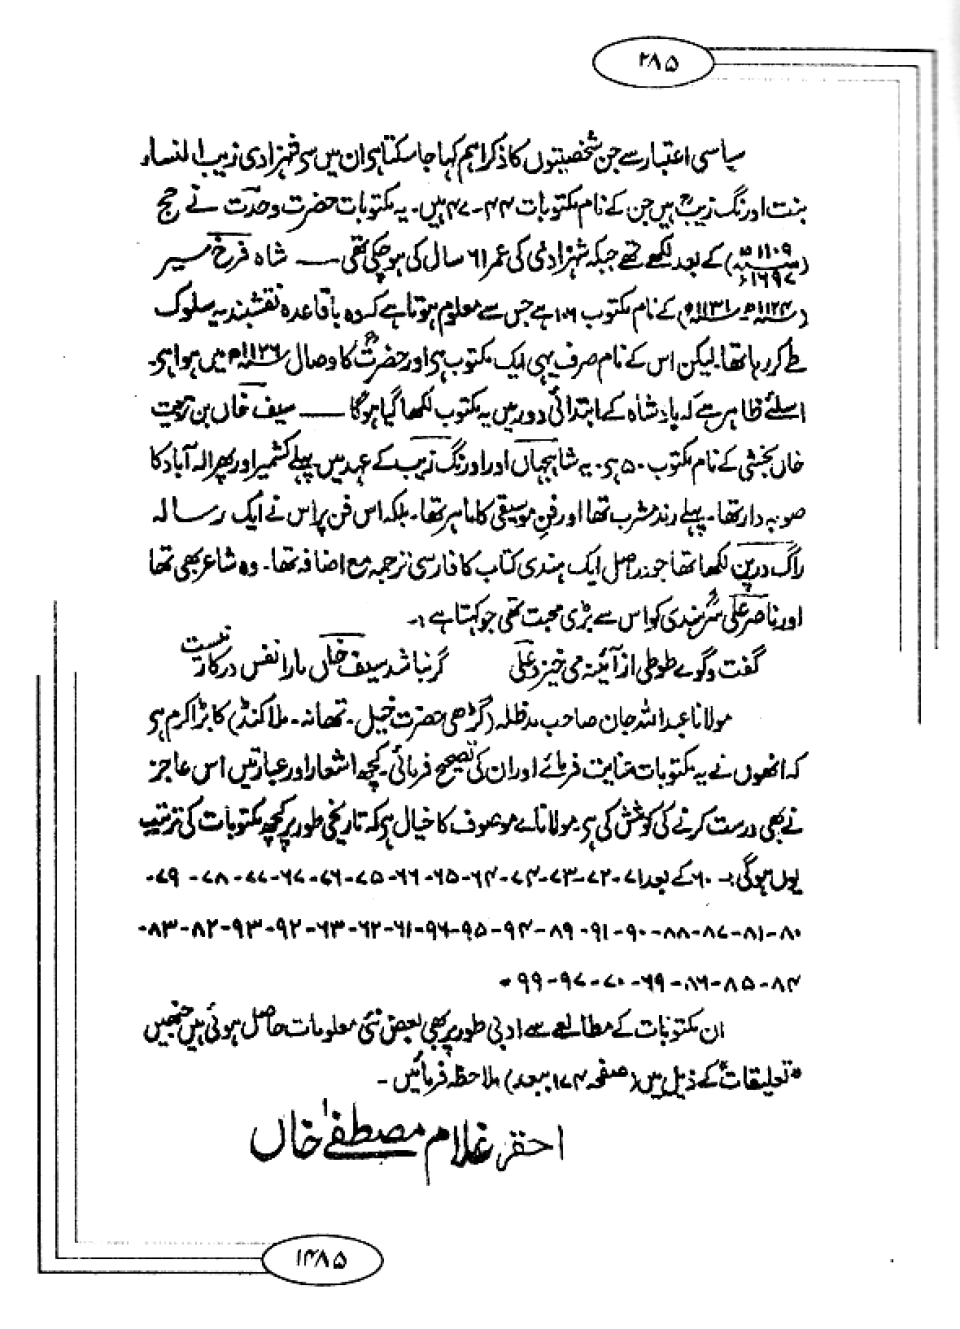 ۲۸۵
سیاسی اعتبار سے جن شخصیتوں کا ذکر اہم کہا جا سکتا ہی ان میں سی شہزادی زیب النساء
بنت اورنگ زیبؒ ہیں جن کے نام مکتوبات ۴۴-۴۷ ہیں۔ یہ مکتوبات حضرت وحدتؒ نے حج
(سنہ ۱۱۰۹ھ / ۱۶۹۷ء) کے بعد لکھے تھے جبکہ شہزادی کی عمر ۶۱ سال کی ہو چکی تھی — شاہ فرخ سیر
(سنہ ۱۱۲۴ھ - سنہ ۱۱۳۱ھ) کے نام مکتوب ۱۰۶ ہے جس سے معلوم ہوتا ہے کہ وہ باقاعدہ نقشبندیہ سلوک
طے کر رہا تھا۔ لیکن اس کے نام صرف یہی ایک مکتوب ہی اور حضرتؒ کا وصال سنہ ۱۱۲۶ھ میں ہوا ہی۔
اسلئے ظاہر ہے کہ بادشاہ کے ابتدائی دور میں یہ مکتوب لکھا گیا ہوگا — سیف خاں بن تربیت
خاں بخشی کے نام مکتوب ۵۰ ہی۔ یہ شاہجہاں اور اورنگ زیب کے عہد میں پہلے کشمیر اور پھر الہ آباد کا
صوبہ دار تھا۔ پہلے رند مشرب تھا اور فنِ موسیقی کا ماہر تھا۔ بلکہ اس فن پر اس نے ایک رسالہ
راگ درپن لکھا تھا جو دراصل ایک ہندی کتاب کا فارسی ترجمہ مع اضافہ تھا۔ وہ شاعر بھی تھا
اور ناصر علی سرہندی کو اس سے بڑی محبت تھی جو کہتا ہے :۔
گفت و گوے طوطی از آئینہ می خیزد علی گر نباشد سیف خاں مارا نفس درکار نیست
مولانا عبداللہ جان صاحب مدظلہ (گڑھی حضرت خیل۔ تھانہ۔ ملاکنڈ) کا بڑا کرم ہی
کہ انھوں نے یہ مکتوبات عنایت فرمائے اور ان کی تصحیح فرمائی۔ کچھ اشعار اور عبارتیں اس عاجز
نے بھی درست کرنے کی کوشش کی ہی۔ مولانا ے موصوف کا خیال ہی کہ تاریخی طور پر کچھ مکتوبات کی ترتیب
یوں ہوگی :۔ ۶۰ کے بعد ۷۱-۷۲-۷۳-۷۴-۶۴-۶۵-۶۶-۷۵-۷۶-۶۷-۷۷-۷۸-۷۹-
۸۰-۸۱-۸۷-۸۸-۹۰-۹۱-۸۹-۹۴-۹۵-۹۶-۶۱-۶۲-۶۳-۹۲-۹۳-۸۲-۸۳-
۸۴-۸۵-۸۶-۶۹-۷۰-۹۷-۹۹ *
ان مکتوبات کے مطالعے سے ادبی طور پر بھی بعض نئی معلومات حاصل ہوئی ہیں جنھیں
"تعلیقات" کے ذیل میں (صفحہ ۱۷۴ ببعد) ملاحظہ فرمائیں۔
احقر غلام مصطفےٰ خاں
۱۴۸۵